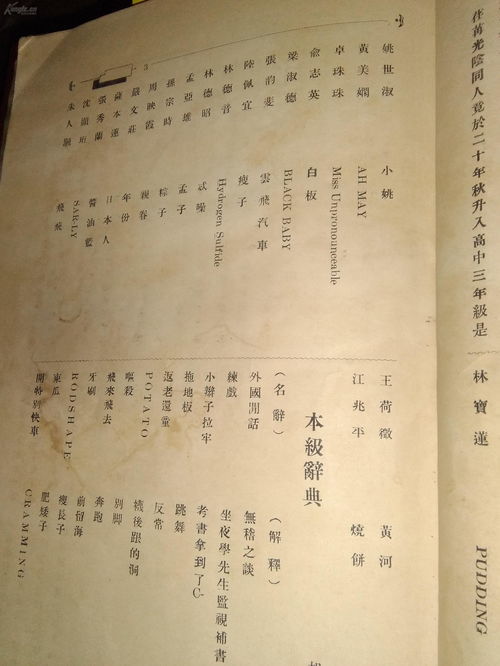 在苒光陰同人竟於二十年秋升入高中三年級是
林寶蓮 PUDDING
姚世淑 小姚
黃美嫻 AH MAY
卓珠珠 Miss Unpronounceable
俞志英 白板
梁淑德 BLACK BABY
張韵斐 雲飛汽車
陸佩宜 瘦子
林德音 Hydrogen Sulfide
林德昭 試嗓
孟亞雄 孟子
孫宗時 粽子
周映霞 親眷
嚴文莊 年份
薩本蓮 日本人
張秀蘭 醬油藍
沈嶺珩 SAR-LY
朱人駬 飛飛
3
王荷徵 黃河
江兆平 燒餅
本級辭典
(名辭) (解釋)
外國閒話 無稽之談
練戲 坐夜學先生監視補書
小辮子拉牢 考書拿到了C-
拖地板 跳舞
返老還童 反常
POTATO 襪後跟的洞
嘔殺 別脚
飛來飛去 奔跑
牙刷 前留海
RODSHAPE 瘦長子
東瓜 肥矮子
開特別快車 CRAMMING